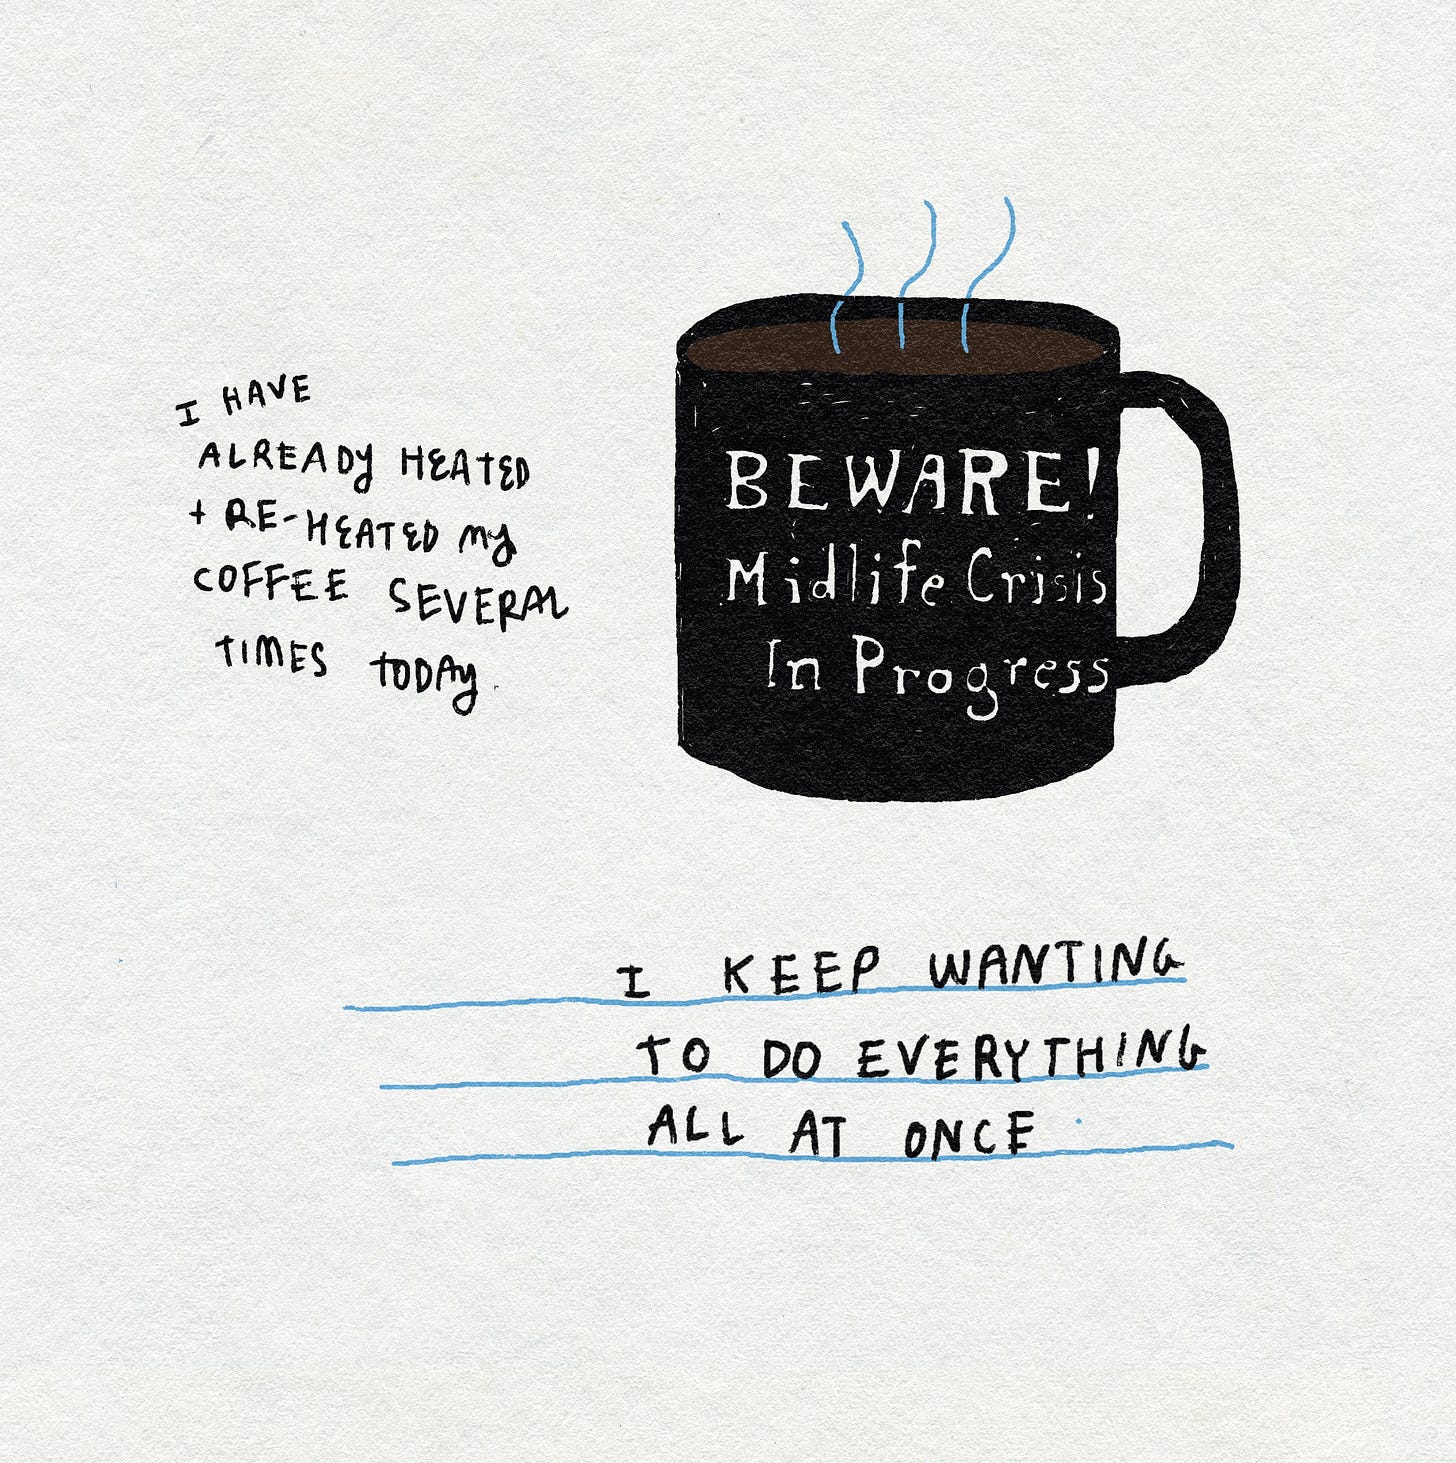 I HAVE
ALREADY HEATED
+ RE-HEATED My
COFFEE SEVERAL
TIMES TODAy.
BEWARE!
Midlife Crisis
In Progress
I KEEP WANTING
TO DO EVERYTHING
ALL AT ONCE